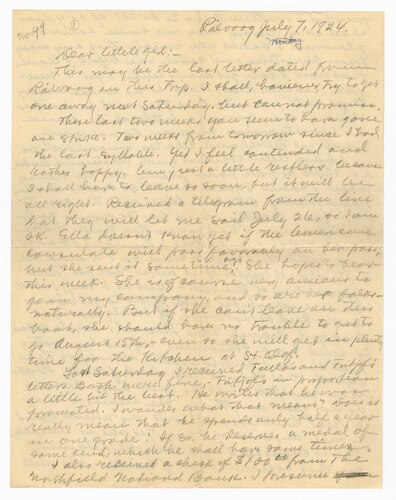 No 99 ① Rälvoog July 7, 1924.
Monday
Dear little girl:-
This may be the last letter dated from
Rälvoog on this trip. I shall, however, try to get
one away next Saturday, but cannot promise.
These last two weeks you seem to have gone
on strike. Two weeks from tomorrow since I had
the last syllable. Yet I feel contented and
rather happy. Am just a little restless, because
I shall have to leave so soon, but it will be
all right. Received a telegram from the line
that they will let me sail July 26, so I am
O.K. Ella doesn't know yet if the American
consulate will pass favorably on her pass,
but she sent it some time ago. She hopes to hear
this week. She is of course very anxious to
go in my company, and so are her folks -
naturally. But if she can't leave on this
boat, she should have no trouble to get to
go August 15th, even so she will get in plenty
time for the Kitchen at St. Olaf.
Last Saturday I received Tullas and Fritjof's
letters. Both were fine, - Fritjof's in proportion
a little bit the best. He writes that he was
promoted. I wonder what that means? Does it
really mean that he spends only half a year
in one grade? If so, he deserves a medal of
some kind, which he shall have some time.
I also received a check of $100.00 from The
Northfield National Bank. I presume